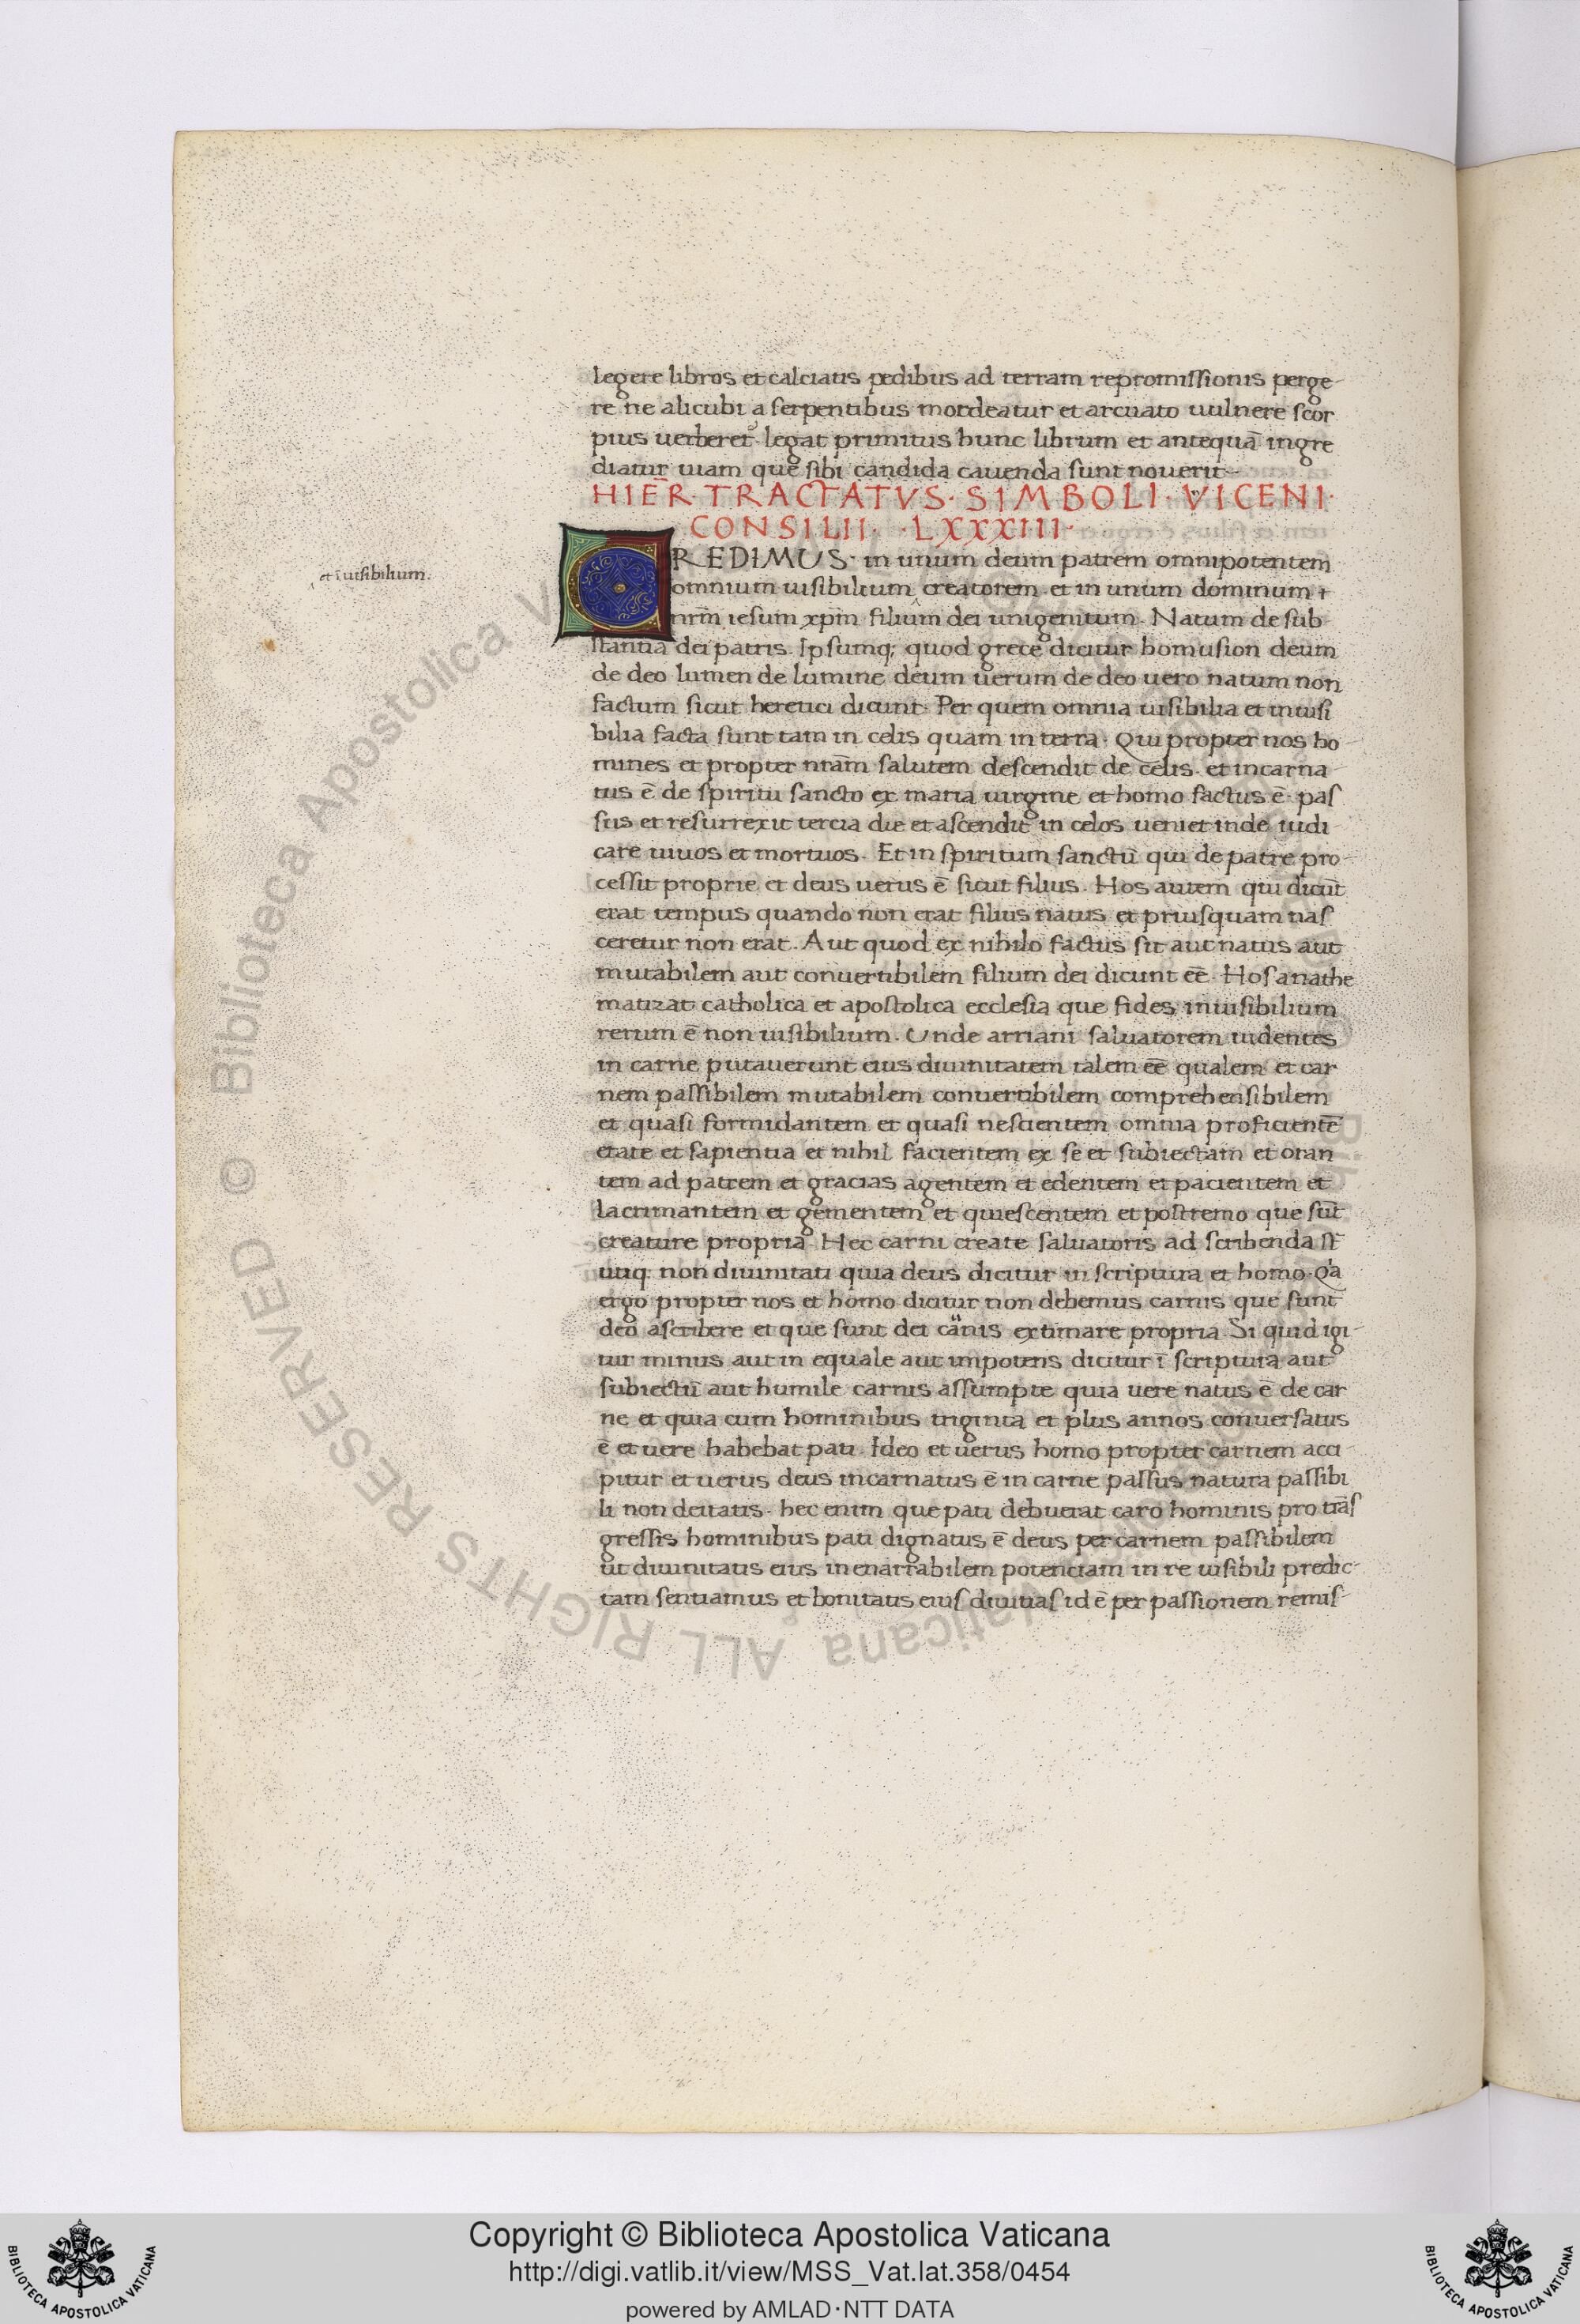 legere libros et calciatis pedibus ad terram repromissionis perge-
re ne alicubi a serpentibus mordeatur et arcuato uulnere scor
pius uerberet legat primitus hunc librum et antequā ingre
diatur uiam que sibi candida cauenda sunt nouerit
HIER̄· TRACTATVS· SIMBOLI· VICENI·
CONSILII· ·LXXXIIII·
et īuisibilium.
CREDIMUS· in unum deum patrem omnipotentem
omnium uisibilium creatorem. et in unum dominum
nr̄m iesum xp̄m filium dei unigenitum. Natum de sub
stantia dei patris. Ipsumq; quod grece dicitur homusion deum
de deo lumen de lumine deum uerum de deo uero natum non
factum sicut heretici dicunt. Per quem omnia uisibilia et inuisi
bilia facta sunt tam in celis quam in terra. Qui propter nos ho-
mines et propter nrām salutem descendit de celis. et incarna-
tus ē de spiritu sancto ex maria uirgine et homo factus ē. pas
sus et resurrexit tercia die et ascendit in celos ueniet inde iudi
care uiuos et mortuos. Et in spiritum sanctū qui de patre pro-
cessit proprie et deus uerus ē sicut filius. Hos autem qui dicūt
erat tempus quando non erat filius natus et priusquam nas
ceretur non erat. Aut quod ex nihilo factus sit aut natus aut
mutabilem aut conuertibilem filium dei dicunt eē. Hos anathe
matizat catholica et apostolica ecclesia que fides inuisibilium
rerum ē non uisibilium. Unde arriani saluatorem uidentes
in carne putauerunt eius diuinitatem talem eē qualem et car
nem passibilem mutabilem conuertibilem comprehensibilem
et quasi formidantem et quasi nescientem omnia proficientē
etate et sapientia et nihil facientem ex se et subiectam et oran
tem ad patrem et gracias agentem et edentem et pacientem et
lacrimantem et gementem et quiescentem et postremo que sūt
creature propria. Hec carni create saluatoris ad scribenda st̄
utiq. non diuinitati quia deus dicitur in scriptura et homo. Qa
ergo propter nos et homo dicitur non debemus carnis que sunt
deo ascribere et que sunt dei canis extimare propria. Si quid igi-
tur minus aut in equale aut impotens dicitur ī scriptura aut
subiectū aut humile carnis assumpte quia uere natus ē de car
ne et quia cum hominibus triginta et plus annos conuersatus
ē et uere habebat pati. Ideo et uerus homo propter carnem acci-
pitur et uerus deus incarnatus ē in carne passus natura passibi
li non deitatis. hec enim que pati debuerat caro hominis pro trās
gressis hominibus pati dignatus ē deus per carnem passibilem
ut diuinitatis eius inenarrabilem potenciam in re uisibili predic-
tam sentiamus et bonitatis eius diuitias id ē per passionem remis-
Biblioteca Apostolica Vaticana ALL RIGHTS RESERVED ©
Copyright © Biblioteca Apostolica Vaticana
http://digi.vatlib.it/view/MSS_Vat.lat.358/0454
powered by AMLAD·NTT DATA
BIBLIOTECA APOSTOLICA VATICANA
BIBLIOTECA APOSTOLICA VATICANA